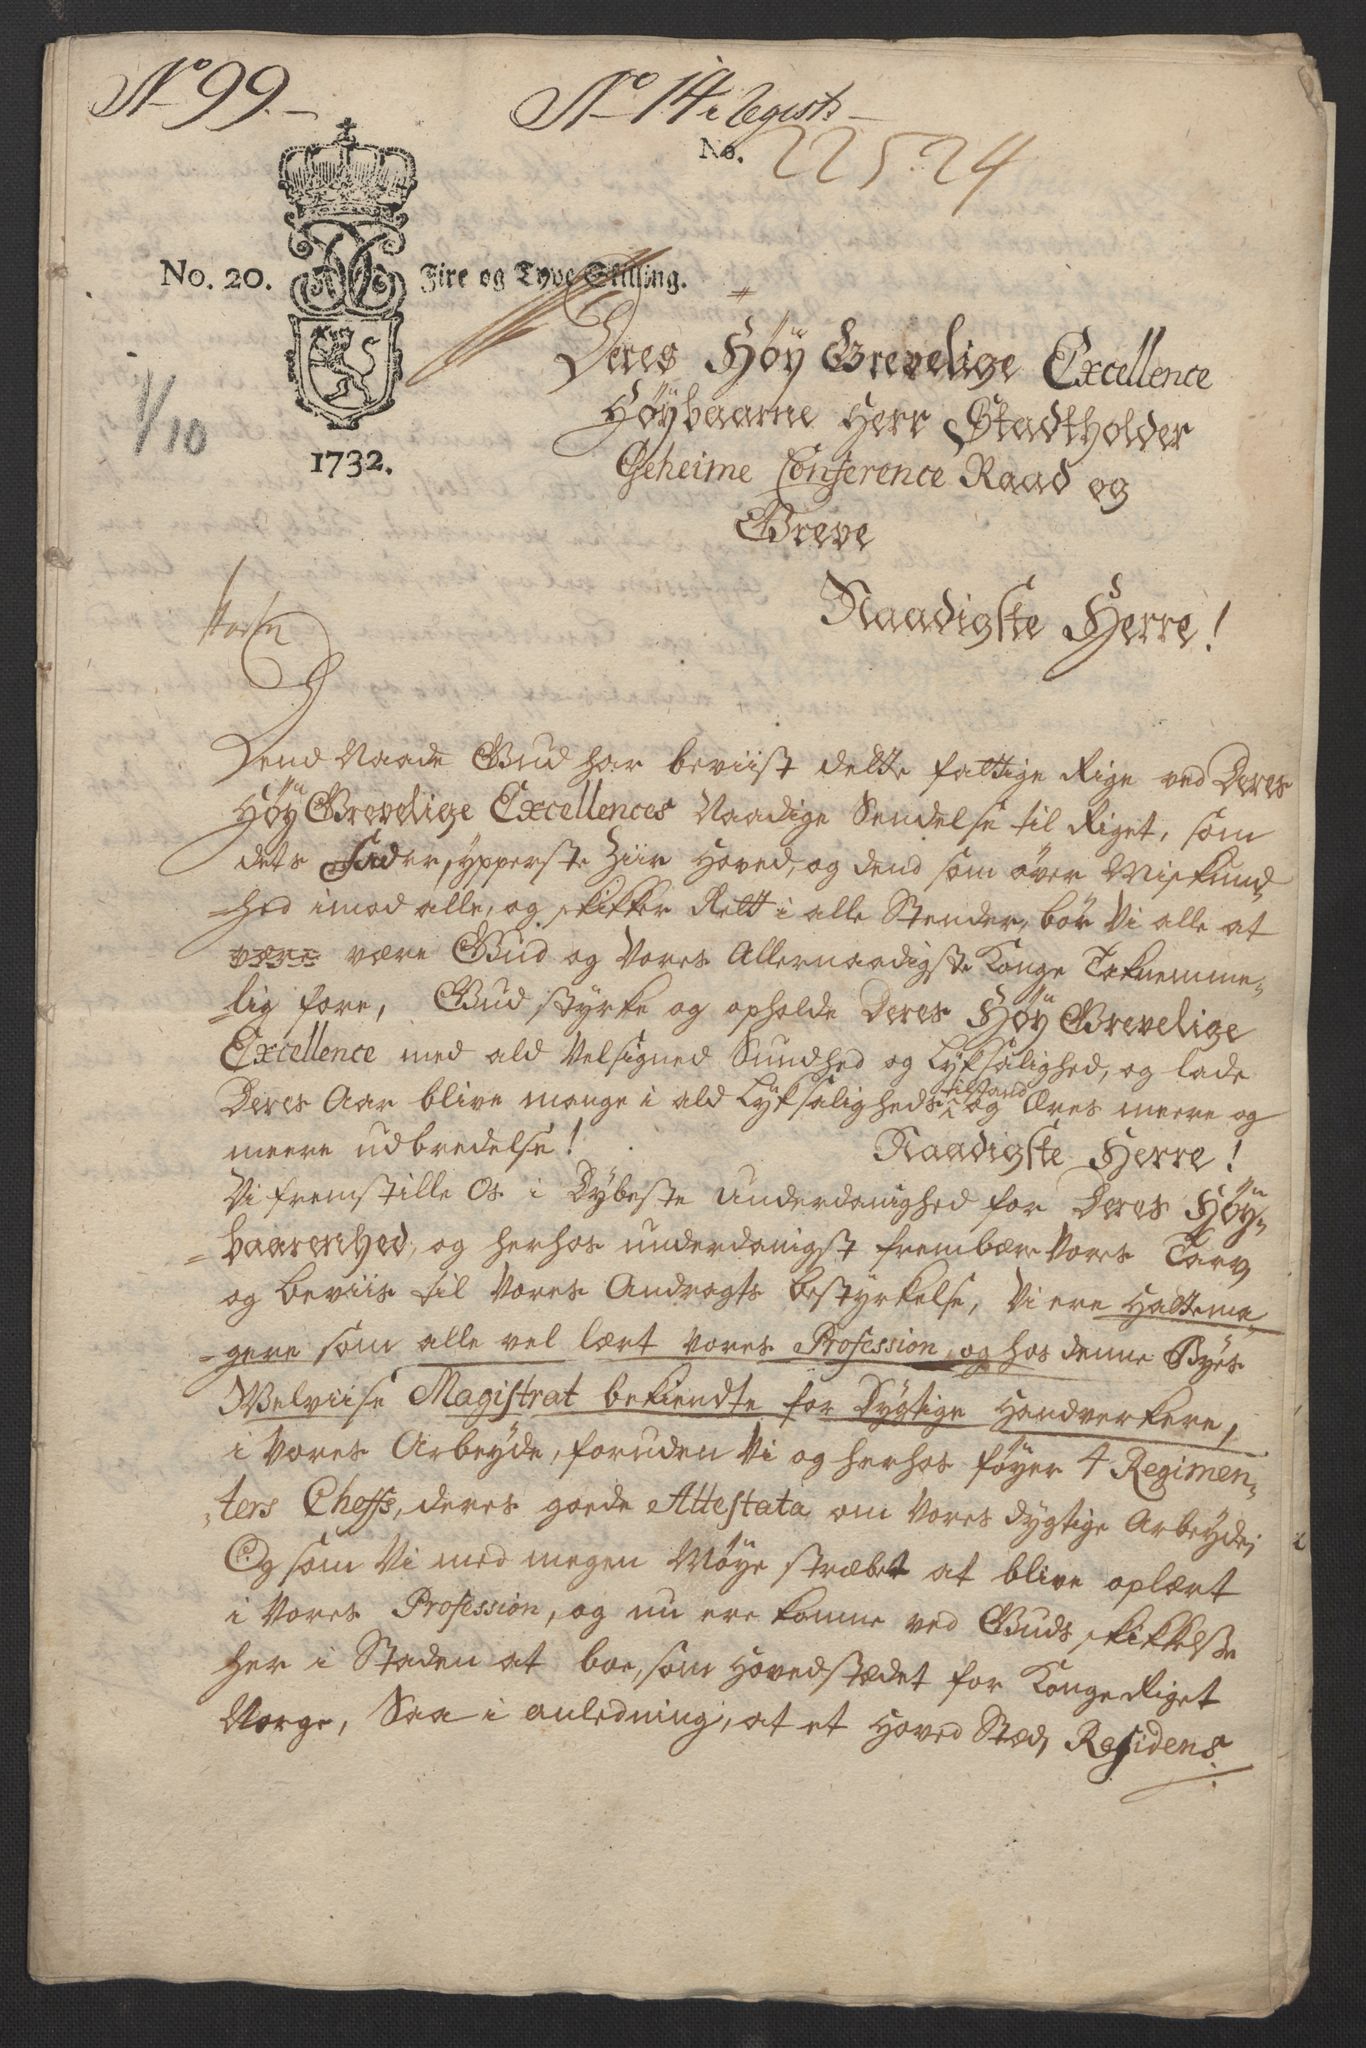 No 99.
No 14 i Regist:
No. 22524
No. 20. Fire og Tyve Skilling.
1/10
1732.
Deres Høÿ Grevelige Excellence
Høÿbaarne Herr Stadtholder
Geheime Conference Raad og
Greve
Naadigste Herre!
Dend Naade Gud har beviist dette fattige Rige ved Deres
HøÿGrevelige Excellences Naadige Sendelse til Riget, som
dets Fader, ypperste Ziir Hoved, og dend som øver Miskund-
-hed imod alle, og skikker Rett i alle Stender, bør Vi alle at
være være Gud og Vores Allernaadigste Konge Taknemme-
-lig fore, Gud styrke og opholde Deres Høÿ Grevelige
Excellence med ald Velsigned Sundhed og Lyksalighed, og lade
Deres Aar blive mange i ald Lyksaligheds tilstand og Æres meere og
meere udbredelse! Naadigste Herre!
Vi fremstille Os i Dybeste Underdanighed for Deres Høÿ-
-baarenhed, og herhos underdanigst frembære Vores Tarv
og beviis til Vores Andragts bestyrkelse, Vi ere Hattema-
-gere som alle vel lært Vores Profession, og hos denne Byes
Velviise Magistrat bekiendte for Dygtige Handverkere,
i Vores Arbeyde, foruden Vi og herhos føyer 4 Regimen-
-ters Cheffs, deres goede Attestata om Vores dygtige Arbeyde;
Og som Vi med megen Møye stræbet at blive oplært
i Vores Profession, og nu ere komne ved Guds skikkelse
her i Staden at boe, som Hovedstædet for Konge Riget
Norge, Saa i anledning, at et Hoved Stæd, Residens